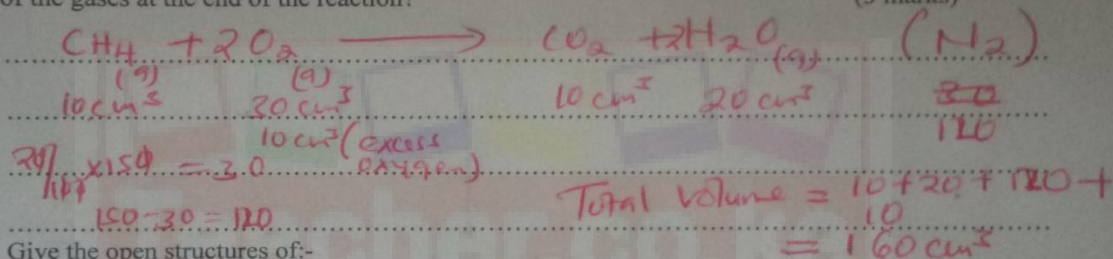 of the gases at the end of the reaction?
CH4 + 2O2 ⟶ CO2 + 2H2O(g) (N2)
(g) (g)
10cm³ 30cm³ 10cm³ 20cm³ 30
10cm³ (excess oxygen) 120
20/100 x 150 = 30
150-30 = 120
Total volume = 10+20+120+
10
= 160cm³
Give the open structures of:-